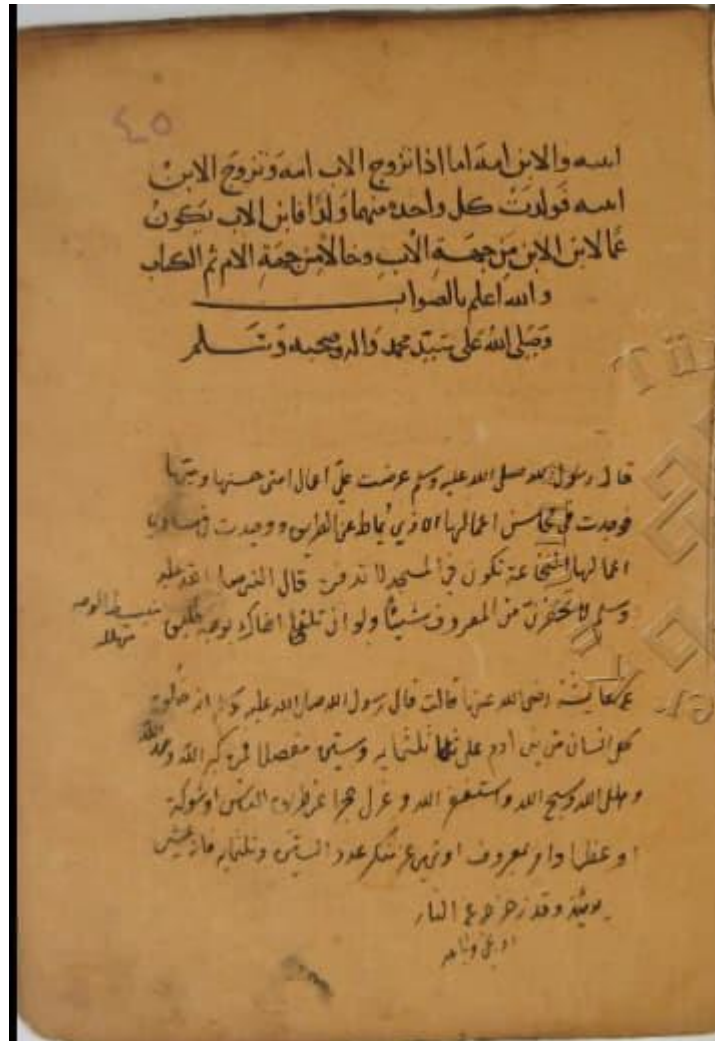 ٤٥
ابنته والابن امه اما اذا تزوج الاب امه وتزوج الابن
ابنته فولدت كل واحدة منهما ولدا فابن الاب يكون
عما لابن الابن من جهة الاب وخالا من جهة الام تم الكتاب
والله اعلم بالصواب
وصلى الله على سيد محمد واله وصحبه وسلم
قال رسول الله صلى الله عليه وسلم عرضت علي اعمال امتي حسنها وسيئها
فوجدت في محاسن اعمالها الاذي يماط عن الطريق ووجدت في مساوئ
اعمالها النخاعة تكون في المسجد لا تدفن قال النبي صلى الله عليه
وسلم لا تحقرن من المعروف شيئا ولو ان تلقى اخاك بوجه طليق
منبسط الوجه
متهلل
عن عايشة رضي الله عنها قالت قال رسول الله صلى الله عليه وسلم انه خلق
كل انسان من بني ادم على ثلثمايه وستين مفصلا فمن كبر الله وحمد الله
وهلل الله وسبح الله واستغفر الله وعزل حجرا عن طريق الناس او شوكة
او عظما وامر بمعروف او نهى عن منكر عدد الستين وثلثمايه فانه يمشي
يومئذ وقد زحزح عن النار